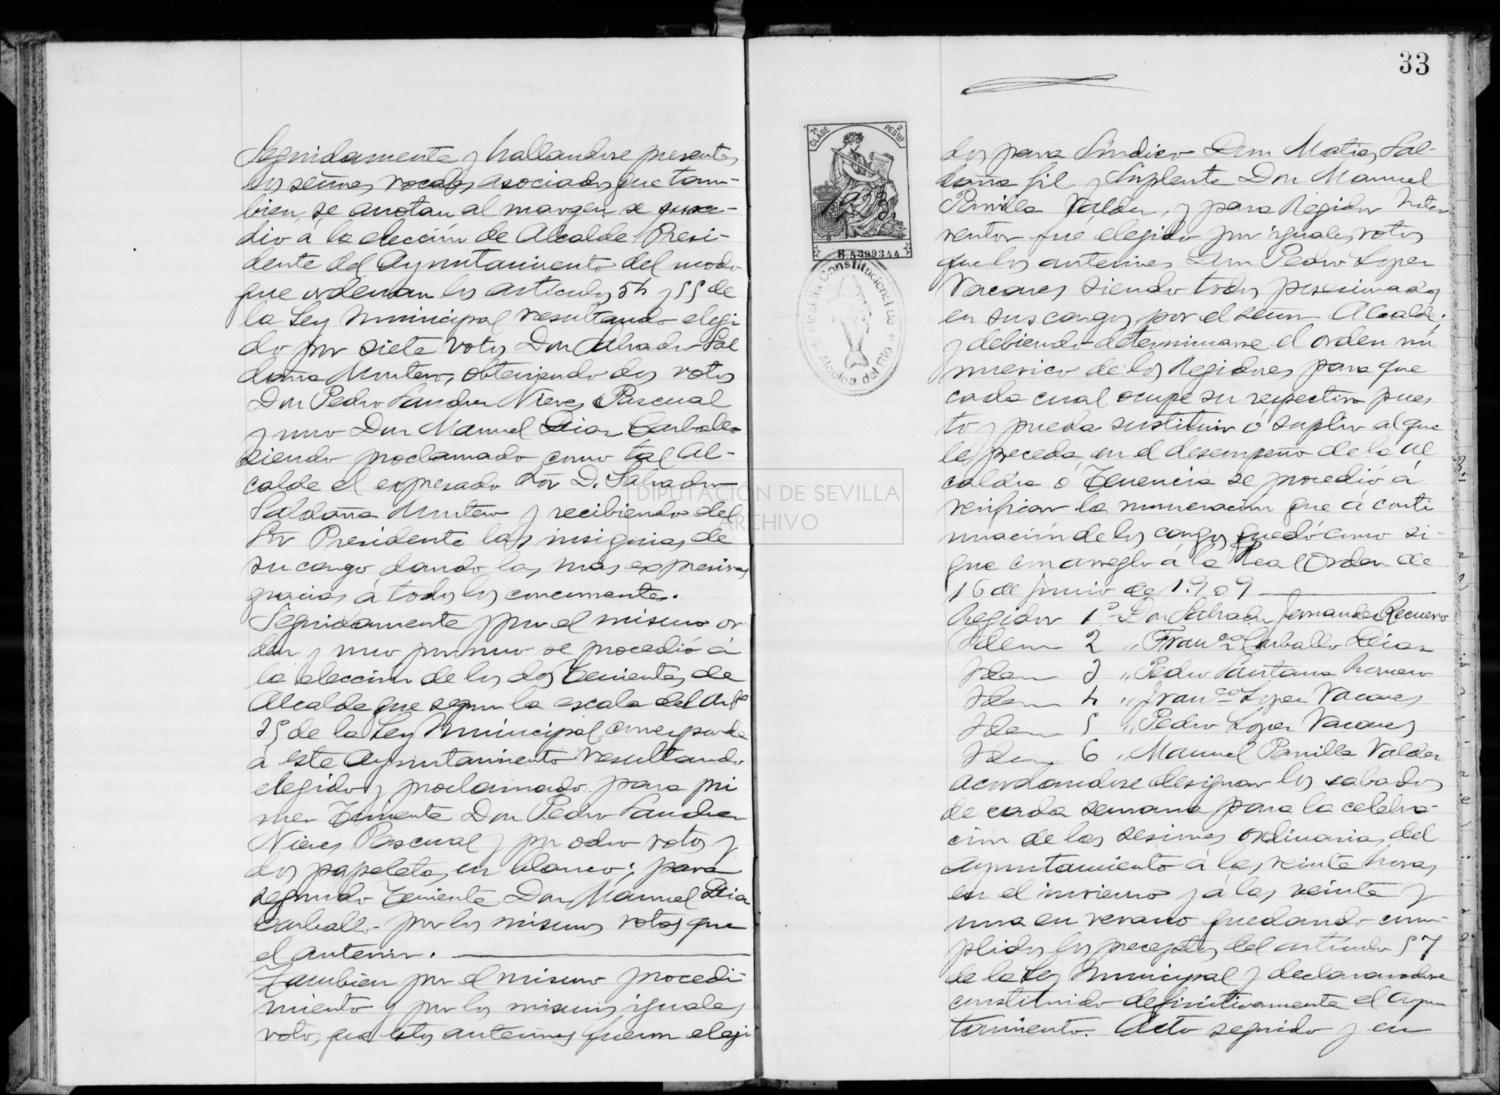 Seguidamente y hallandose presentes
los señores vocales asociados que tam-
bien, se anotan al margen se proce-
dio á la elección de Alcalde Presi-
dente del Ayuntamiento del modo
que ordenan los articulos 54 y 55 de
la Ley Municipal resultando elegi
do por siete votos Don Salvador Sal
daña Montero, obteniendo dos votos
Don Pedro Sanchez Nieves Pascual
y uno Don Manuel Diaz Carballo
siendo proclamado como tal Al-
calde el expresado Sor D. Salvador
Saldaña Montero y recibiendo del
Sor Presidente las insignias de
su cargo dando las mas expresivas
gracias á todos los concurrente.
Seguidamente y por el mismo or
den y uno por uno se procedió á
la elección de los dos Tenientes de
Alcalde que segun la escala del Artº
35 de la Ley Municipal corresponde
a este Ayuntamiento resultando
elegidos y proclamado para pri
mer Teniente Don Pedro Sanchez
Nieves Pascual y por ocho votos y
dos papeletas en blanco; para
segundo Teniente Don Manuel Diaz
Carballo por los mismos votos que
el anterior.
Tambien por el mismo procedi-
miento y por los mismos iguales
votos que los anteriores fueron elegi
33
7ª CLASE 2 PESTS
1923
B.5399344
Alcaldia Constitucional de
Alcolea del Rio
dos para Síndico Don Matias Sal-
daña Gil y Suplente Don Manuel
Parrilla Valder, y para Regidor Inter
ventor fue elegido por iguales votos
que los anteriores Don Pedro Lopez
Nacares siendo todos posesionados
en sus cargos por el señor Alcalde.
y debiendo determinarse el orden nu
merico de los Regidores para que
cada cual ocupe su respectivo pues
to y pueda sustituir ó suplir al que
le preceda en el desempeño de la Al
caldia ó Tenencia se procedió á
verificar la numeracion que á conti
nuación de los cargos quedó como si-
gue con arreglo á la Real Orden de
16 de Junio de 1909
Regidor 1º Don Salvador Fernandez Recuero
Idem 2 " Franco Carballo Diaz
Idem 3 " Pedro Santana Romero
Idem 4 " Franco Lopez Nacares
Idem 5 " Pedro Lopez Nacares
Idem 6 " Manuel Parrilla Valder
acordandose designar los sabados
de cada semana para la celebra-
ción de las sesiones ordinarias del
Ayuntamiento á las veinte horas
en el invierno y á las veinte y
una en verano quedando cum-
plidos los preceptos del articulo 57
de la Ley Municipal y declarandose
constituido definitivamente el Ayun
tamiento. Acto seguido y en
DIPUTACIÓN DE SEVILLA
ARCHIVO